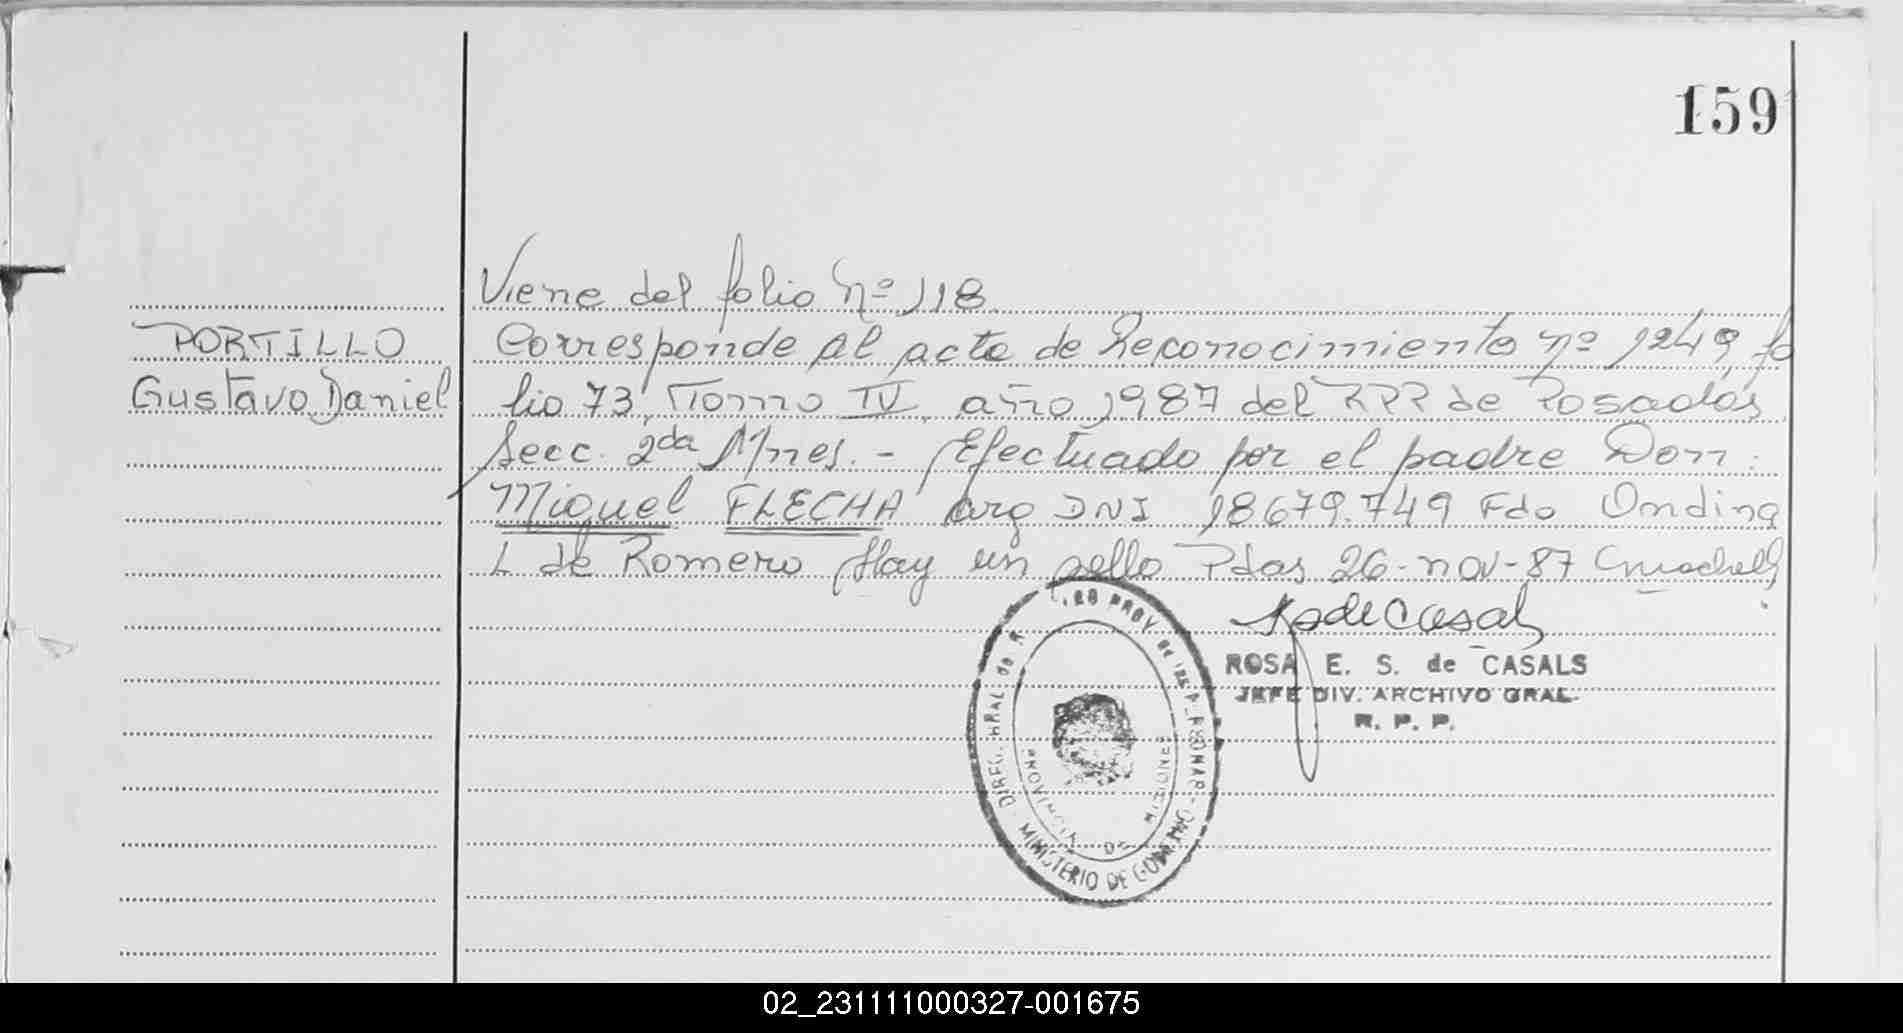 159
Viene del folio Nº 118
PORTILLO
Gustavo Daniel
Corresponde al acta de Reconocimiento nº 1249, fo
lio 73, Tomo IV, año 1987 del RPP de Posadas
Secc. 2da Mnes. - Efectuado por el padre Don:
Miguel FLECHA arg DNI 18679.749 Fdo Ondina
L de Romero Hay un sello Pdas 26-nov-87
ROSA E. S. de CASALS
JEFE DIV. ARCHIVO GRAL.
R. P. P.
DIREC. GRAL de PROV. de las PERSONAS
MINISTERIO DE GOBIERNO
PROVINCIA DE MISIONES
02_231111000327-001675